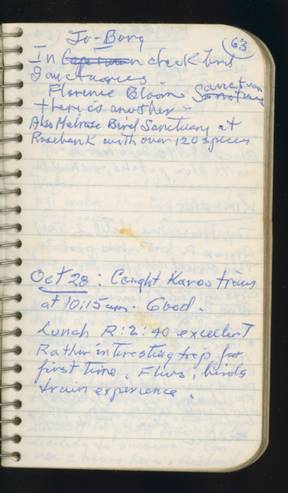 Jo-Borg
63
In Capetown check bird
Sanctuaries.
Florence Bloom Sanctuary
there is another -
Also Melrose Bird Sanctuary at
Rosebank with over 120 species
Oct 28: Caught Karoo train
at 10:15 am. Good.
Lunch R:2:40 excellent
Rather interesting trip for
first time. Flies, birds
train experience.